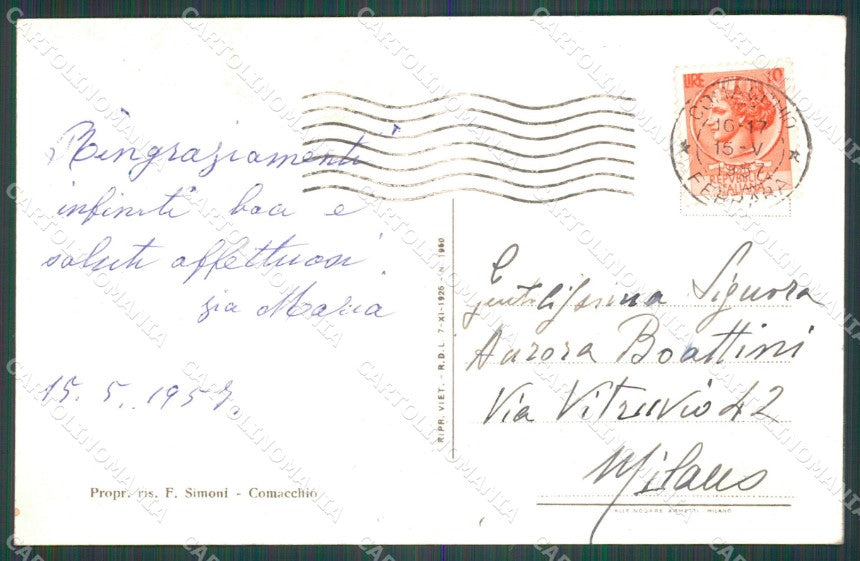 Ringraziamenti
infiniti baci e
saluti affettuosi
zia Maria
15. 5. 1957.
Propr. ris. F. Simoni - Comacchio
RIPR. VIET. - R.D.L. 7-XI-1925 - N. 1950
LIRE 10
COMACCHIO
10-17
15-V
FERRARA
REPVBBLICA
ITALIANA
Gentilissima Signora
Aurora Boattini
Via Vitruvio 42
Milano
CARTOLINOMANIA